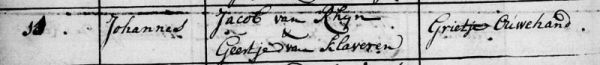 Jacob van Rhyn
Johannes & Grietje Ouwehand.
Geertje van Klaveren